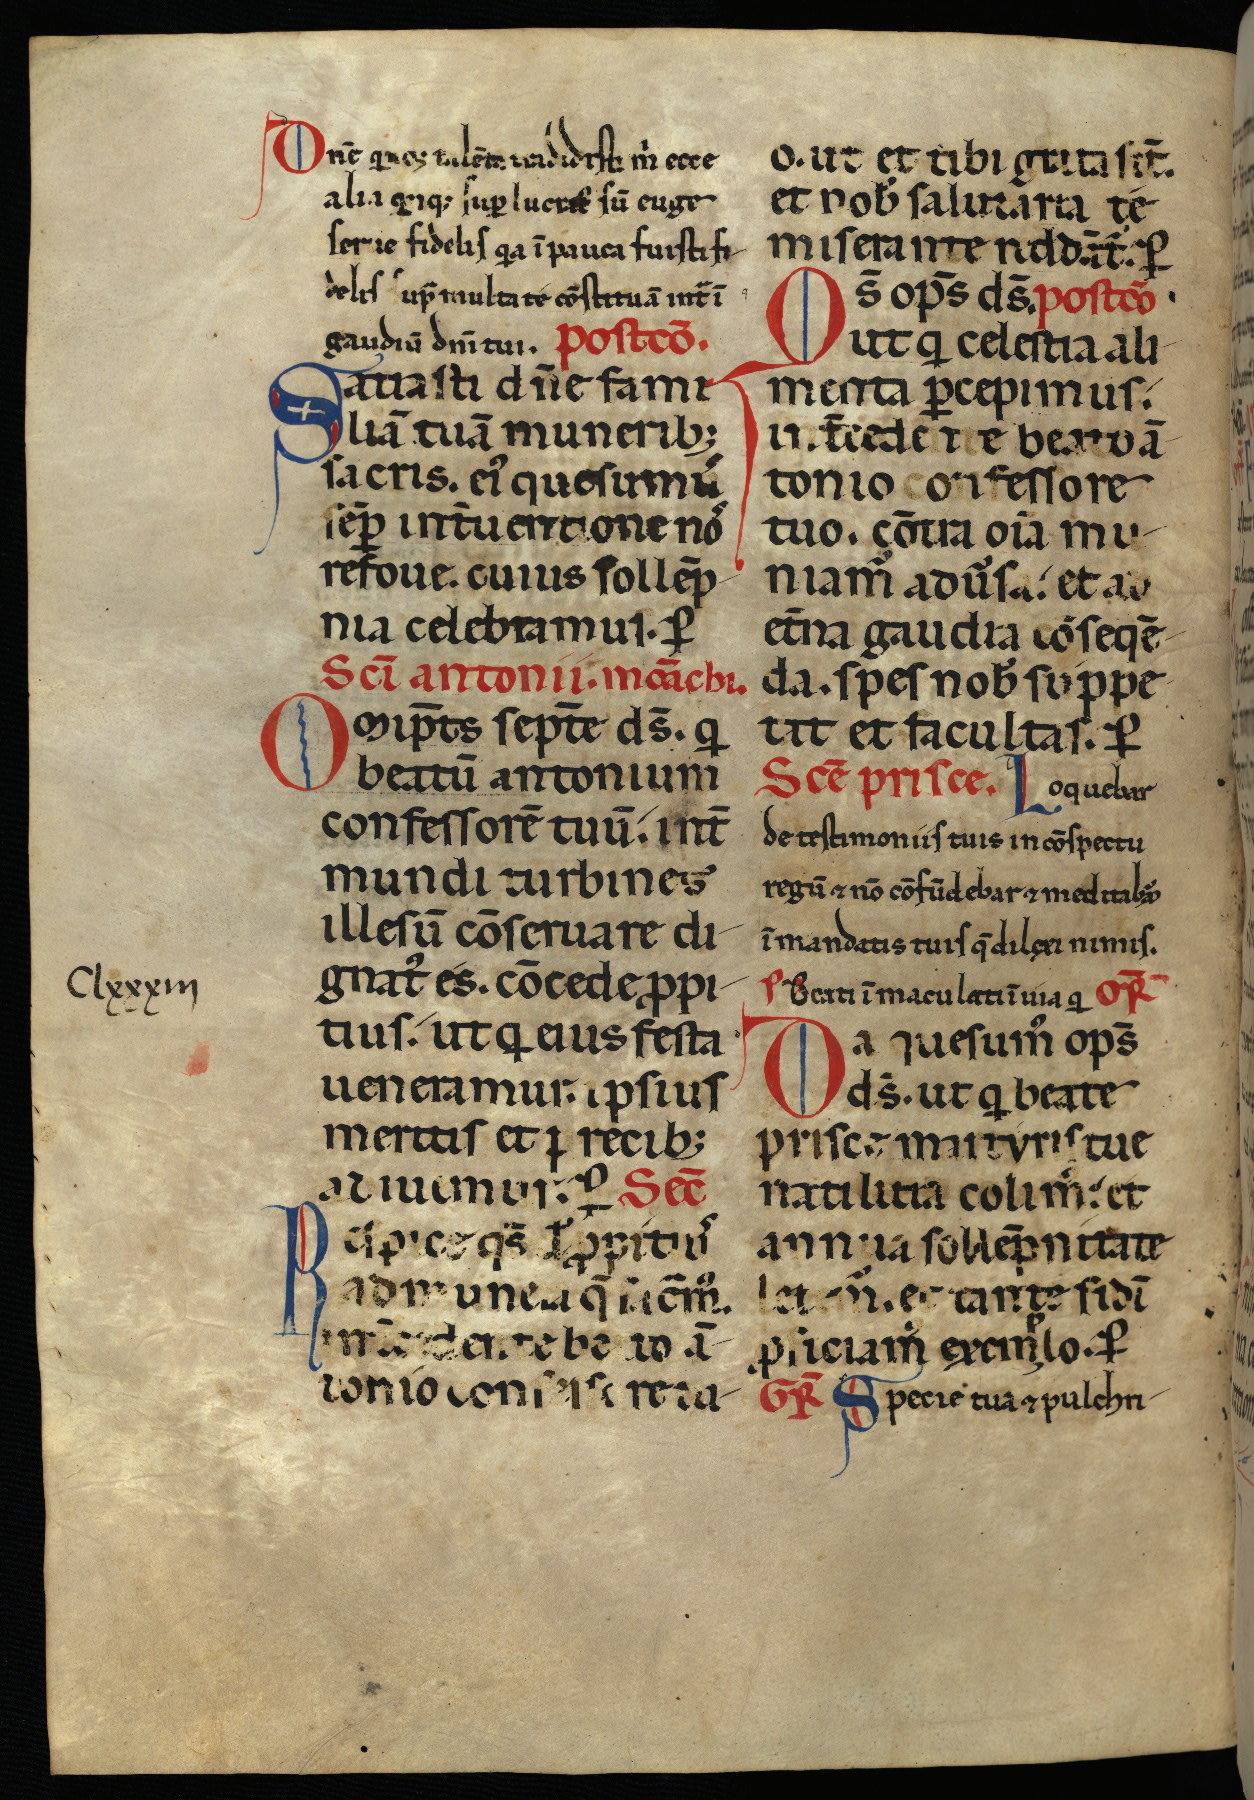 Dn̄e quinq; talēta tradidisti m̄ ecce
alia qinq; sup lucratꝰ sū euge
serue fidelis q̄a ī pauca fuisti fi-
delis sup̄ multa te cōstituā int̄ ī
gaudiū dn̄i tui. postcō.
Satiasti dn̄e fami
liā tuā munerib;
sacris. eiꝰ quesumꝰ
sēp int̄uentione noˢ
refoue. cuius sollēp-
nia celebramus. ꝑ
Scī antonii. mōachi.
Om̄ip̄ts sepit̄e ds̄. q̇
beatū antonium
confessorē tuū. int̄
mundi turbines
illesū cōseruare di-
gnatꝰ es. cōcede ꝓpi-
tius. ut q̇ eius festa
ueneramur. ipsius
meritis et p̄recib;
adiuuemur. ꝑ Sec̄
Respice qs̄ dn̄e ꝓpitiꝰ
ad munera q̄ sac̄mꝰ.
int̄cedente beato ā-
tonio confessore tu-
Clxxxiii
o. ut et tibi grata sīt.
et nobˢ salutaria te
miserante reddāt̄. ꝑ
Os̄ op̄s ds̄. postcō
ut q̇ celestia ali
menta ꝑcepimus.
int̄cedente beato ā-
tonio confessore
tuo. cōtra oīa mu-
niamꝰ aduˢsa. et ad
et̄na gaudia cōseqē-
da. spes nobˢ suppe
tat et facultas. ꝑ
Scē prisce. Loquebar
de testimoniis tuis in cōspectu
regū ⁊ nō cōfūdebar ⁊ meditabar
ī mandatis tuis q̄ dilexi nimis.
p̄s Beati īmaculati ī uia q̇ or̄
Da quesumꝰ op̄s
ds̄. ut q̇ beate
prisce martyris tue
natalicia colimꝰ. et
annua sollēpnitate
letemꝰ. et tante fidī
ꝓficiamꝰ exemplo. ꝑ
Gr̄ Specie tua ⁊ pulchri-